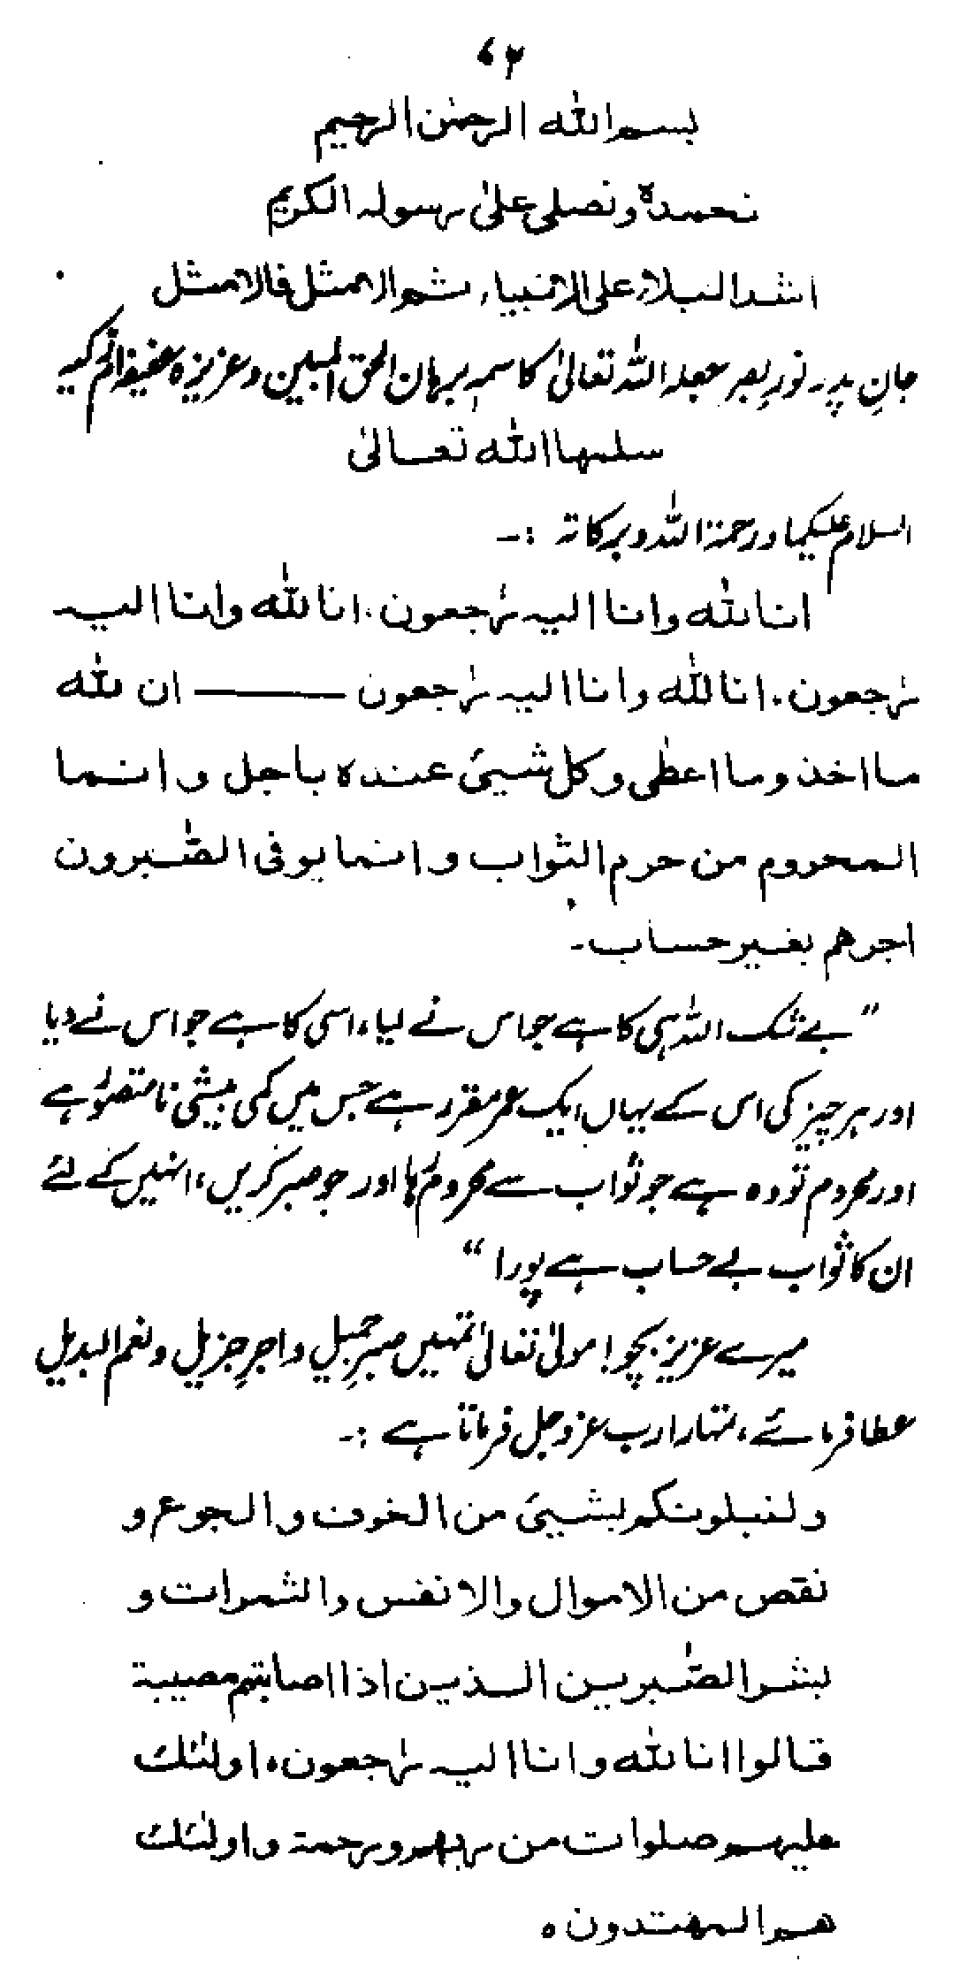 ۷۲
بسم الله الرحمٰن الرحیم
نحمدہ ونصلی علیٰ رسولہ الکریم
اشد البلاء علی الانبیاء ثم الامثل فالامثل
جانِ پدر۔ نورِ بصر جعلہ اللہ تعالیٰ کاسمہٖ برہان الحق المبین وعزیزہ عفیفہ
سلمہا اللہ تعالیٰ
السلام علیکما ورحمۃ اللہ وبرکاتہ :۔
انا للہ وانا الیہ رٰجعون۔ انا للہ وانا الیہ
رٰجعون۔ انا للہ وانا الیہ رٰجعون ——— ان للہ
ما اخذ وما اعطٰی وکل شییٔ عندہ باجل وانما
المحروم من حرم الثواب وانما یوفی الصّٰبرون
اجرھم بغیر حساب۔
”بے شک اللہ ہی کا ہے جو اس نے لیا، اسی کا ہے جو اس نے دیا
اور ہر چیز کی اس کے یہاں ایک عمر مقرر ہے جس میں کمی بیشی نامتصوّر ہے
اور محروم تو وہ ہے جو ثواب سے محروم رہا اور جو صبر کریں، انہیں کے لئے
ان کا ثواب بے حساب ہے پورا“
میرے عزیز بچو! مولیٰ تعالیٰ تمہیں صبرِ جمیل واجرِ جزیل ونعم البدیل
عطا فرمائے، تمہارا رب عزوجل فرماتا ہے :۔
ولنبلونکم بشییٔ من الخوف والجوع و
نقص من الاموال والانفس والثمرات و
بشر الصّٰبرین الذین اذا اصابتہم مصیبۃ
قالوا انا للہ وانا الیہ رٰجعون ہ اولٰئک
علیہم صلوات من ربھم ورحمۃ واولٰئک
ھم المھتدون ہ